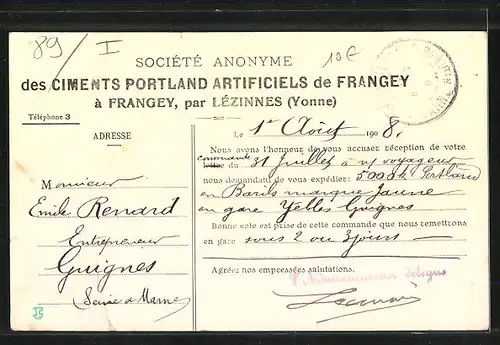 89/I
10€
SOCIÉTÉ ANONYME
des CIMENTS PORTLAND ARTIFICIELS de FRANGEY
à FRANGEY, par LÉZINNES (Yonne)
Téléphone 3
ADRESSE
Le 1er Août 1908.
Nous avons l'honneur de vous accuser réception de votre
commande
lettre du 31 Juillet à n/ voyageur
nous demandant de vous expédier: 5000 k Portland
en Barils marque Jaune
en gare Yèbles Guignes
Bonne note est prise de cette commande que nous remettrons
en gare sous 2 ou 3 jours
Agréez nos empressées salutations.
L'Administrateur délégué
Monsieur
Emile Renard
Entrepreneur
Guignes
Seine & Marne